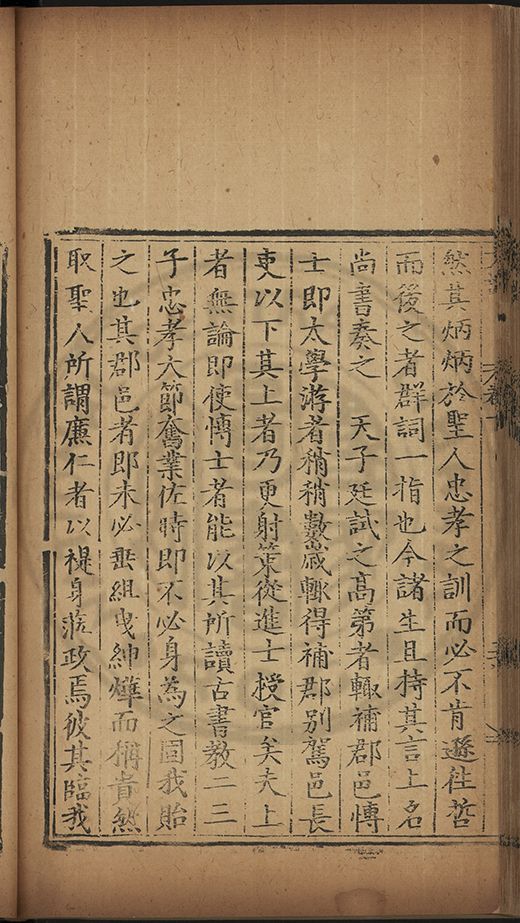 然其炳炳於聖人忠孝之訓而必不肯遜往哲
而後之者群詞一指也今諸生且持其言上名
尚書奏之　天子廷試之高第者輙補郡邑博
士即太學游者稍稍數歲輙得補郡别駕邑長
吏以下其上者乃更射策從進士授官矣夫上
者無論即使博士者能以其所讀古書教二三
子忠孝大節奮業佐時即不必身為之固我貽
之也其郡邑者即未必垂組曳紳燁而稱貴然
取聖人所謂廉仁者以褆身涖政焉彼其臨我